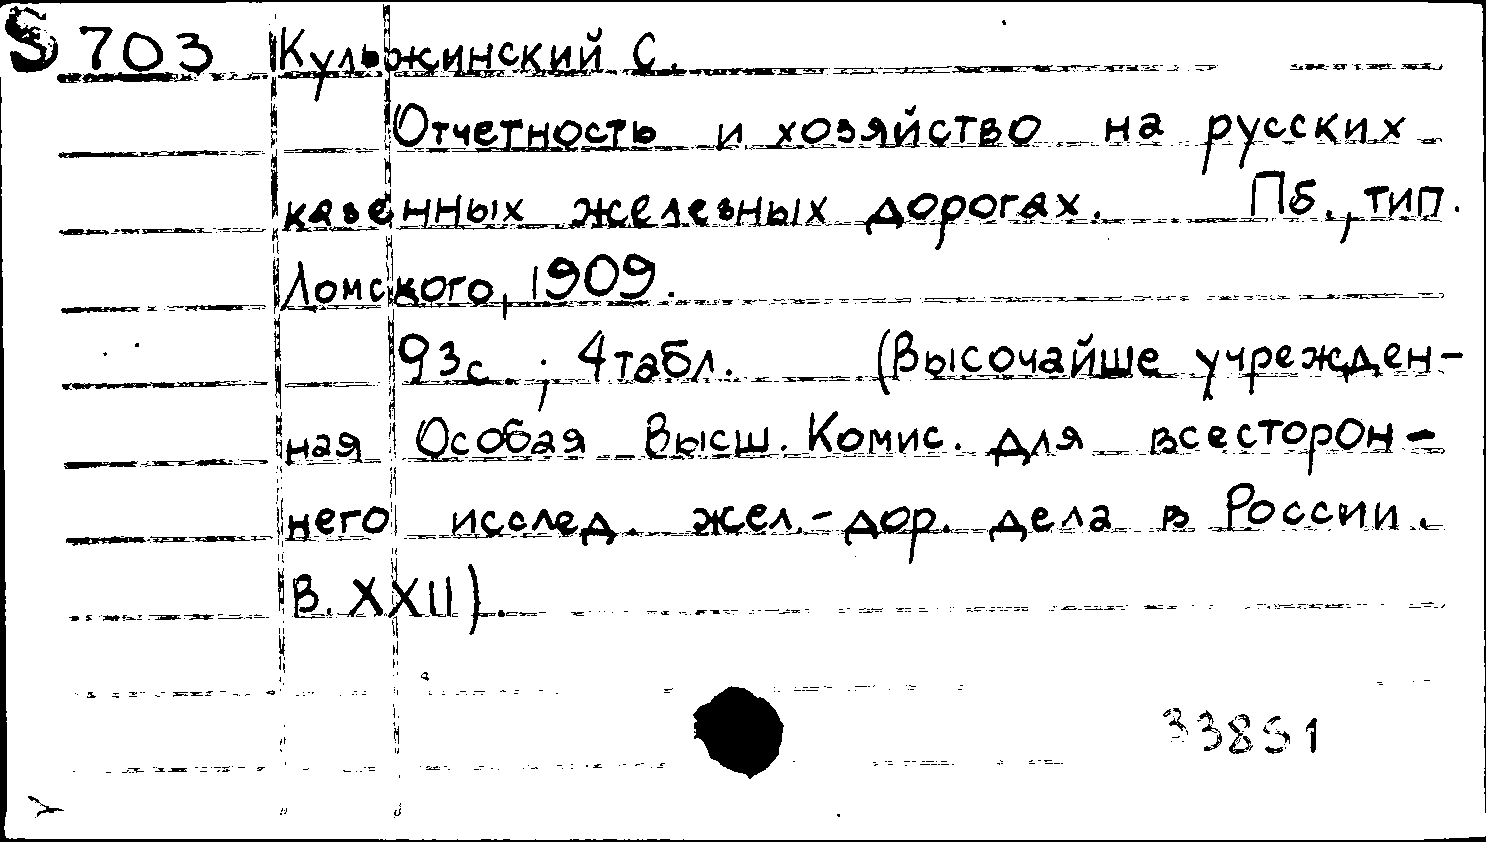 S 703 Кульжинский С.
Отчетность и хозяйство на русских
казенных железных дорогах. Пб., тип.
Ломского, 1909.
93с.; 4 табл. (Высочайше учрежден-
ная Особая Высш. Комис. для всесторон-
него исслед. жел.-дор. дела в России.
В. XXII).
33851